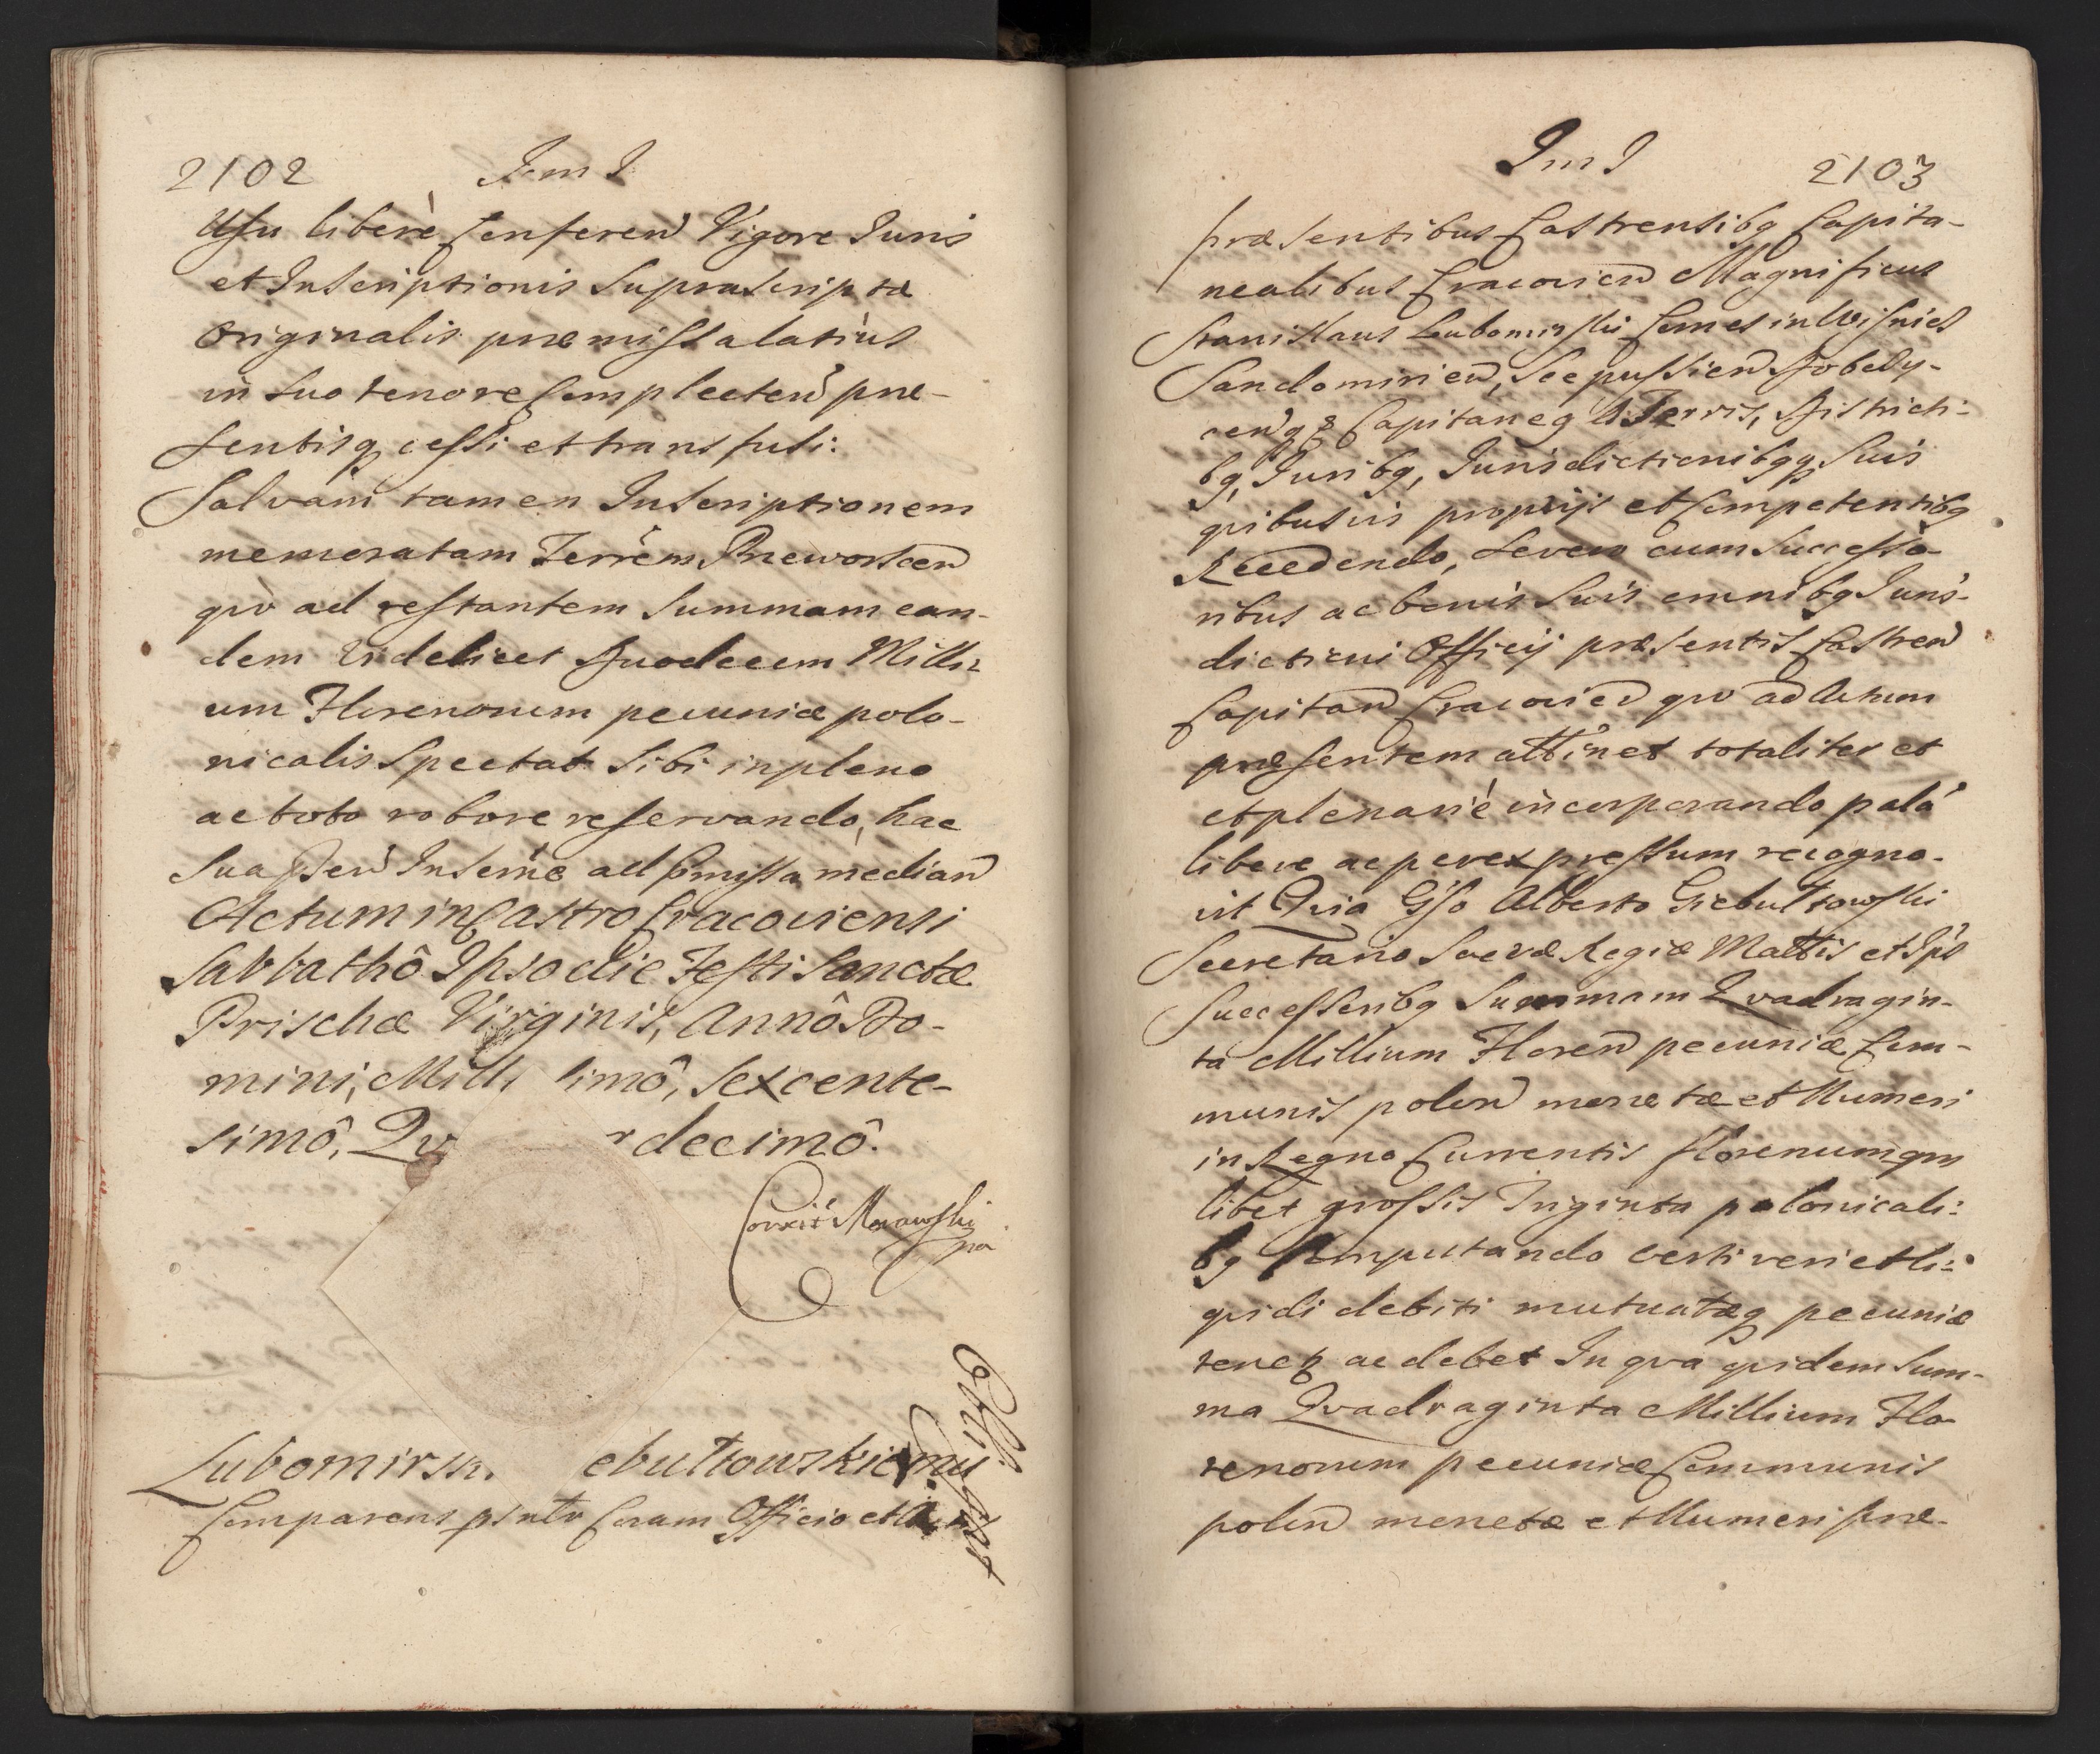 2102 Tom I
Usu liberè Conferen Vigore Juris
et Inscriptionis Suprascriptæ
Originalis præmissa latiùs
in suo tenore Complecten præ-
sentisq cessi et transfusi:
Salvam tamen Inscriptionem
memoratam Terrem Przeworscen
qvo ad restantem Summam ean-
dem videlicet Duodecem Milli-
um Florenorum pecuniæ polo-
nicalis Spectat Sibi in pleno
ac toto robore reservando, hac
Sua
Actum in Castro Cracoviensi
Sabbathô Ipso die Festi Sanctæ
Prischæ Virginis, Annô Do-
mini, Mill simô, Sexcente-
simô, Qv r decimô.
Correxit Morawski
mp
Lubomirsk ebultowskiemu
Comparens psntr Coram Officio et
2103
præsentibus Castrensibq Capita-
nealibus Cracovien Magnificus
Stanislaus Lubomirski Comes in Wisnicz
Sandomirien, Scepussien Dobczy-
cenqz Capitaneq a Terris, Districti-
bq, Juribq, Jurisdictionibqq Suis
qvibusvis proprijs et Competentibq
Recedendo, seveo cum Successo-
ribus ac bonis Suis omnibq Juris-
dictioni Officij præsentis Castren
Capitan Cracovien qvo ad Actum
præsentem attinet totaliter et
et plenariè incorporando palá
libere ac per expressum recogno-
vit Qvia Gso Alberto Giebultowski
Secretario Sacræ Regiæ Mattis et Ips
Successoribq Summam Qvadragin-
ta Millium Floren pecuniæ Com-
munis polon monetæ et Numeri
in Regno Currentis florenum qm
libet grossis Triginta polonicali-
bq Computando certi veri et li-
qvidi debiti mutuatæq pecuniæ
tenetz ac debet In qva qvidem Sum-
ma Qvadraginta Millium Flo-
renorum pecuniæ Communis
polon monetæ et Numeri præ-